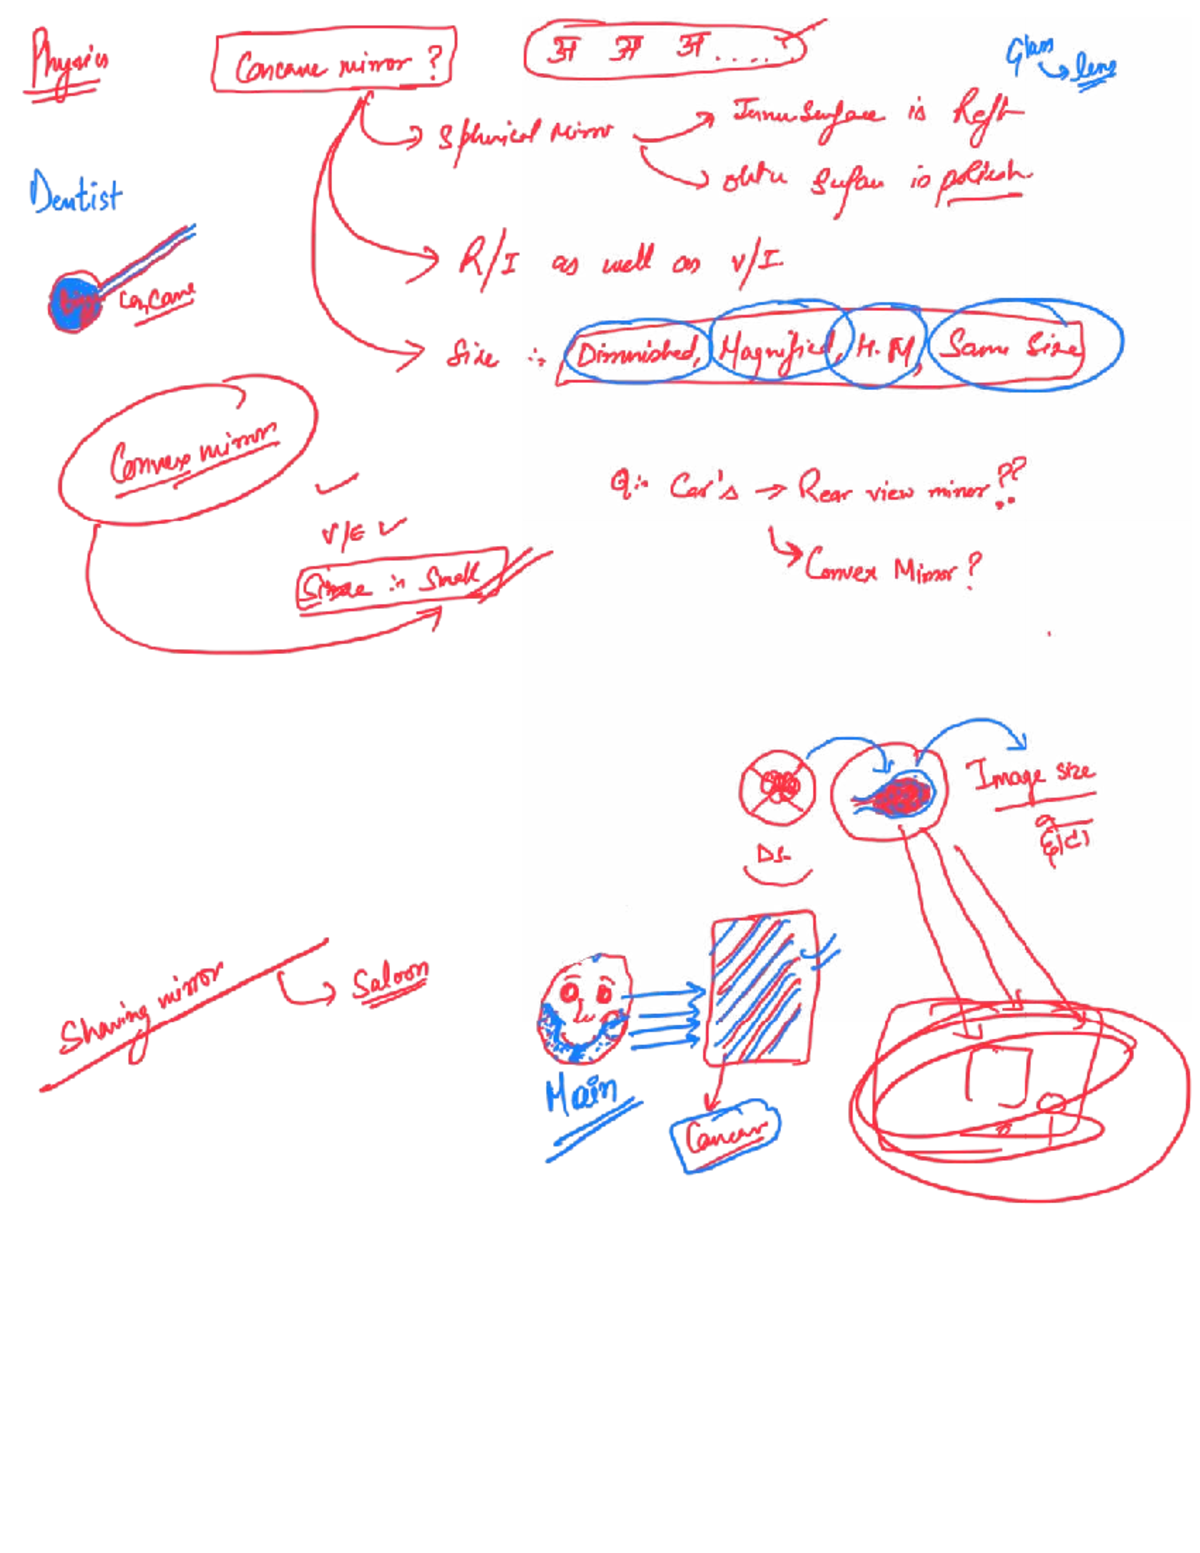 Physics
Concave mirror ?
अ अ अ . . . . . ?
Glass
lens
Spherical Mirror
Inner Surface is Reft
outer Surfau is polish
Dentist
Concave
R/I as well as V/I
Size :- Diminished, Magnified, H.M, Same Size
Convex mirror
Q:- Car's → Rear view mirror??
V/E
Convex Mirror?
Size in Small
Image size
DS
Shaving mirror
Saloon
Main
Concave